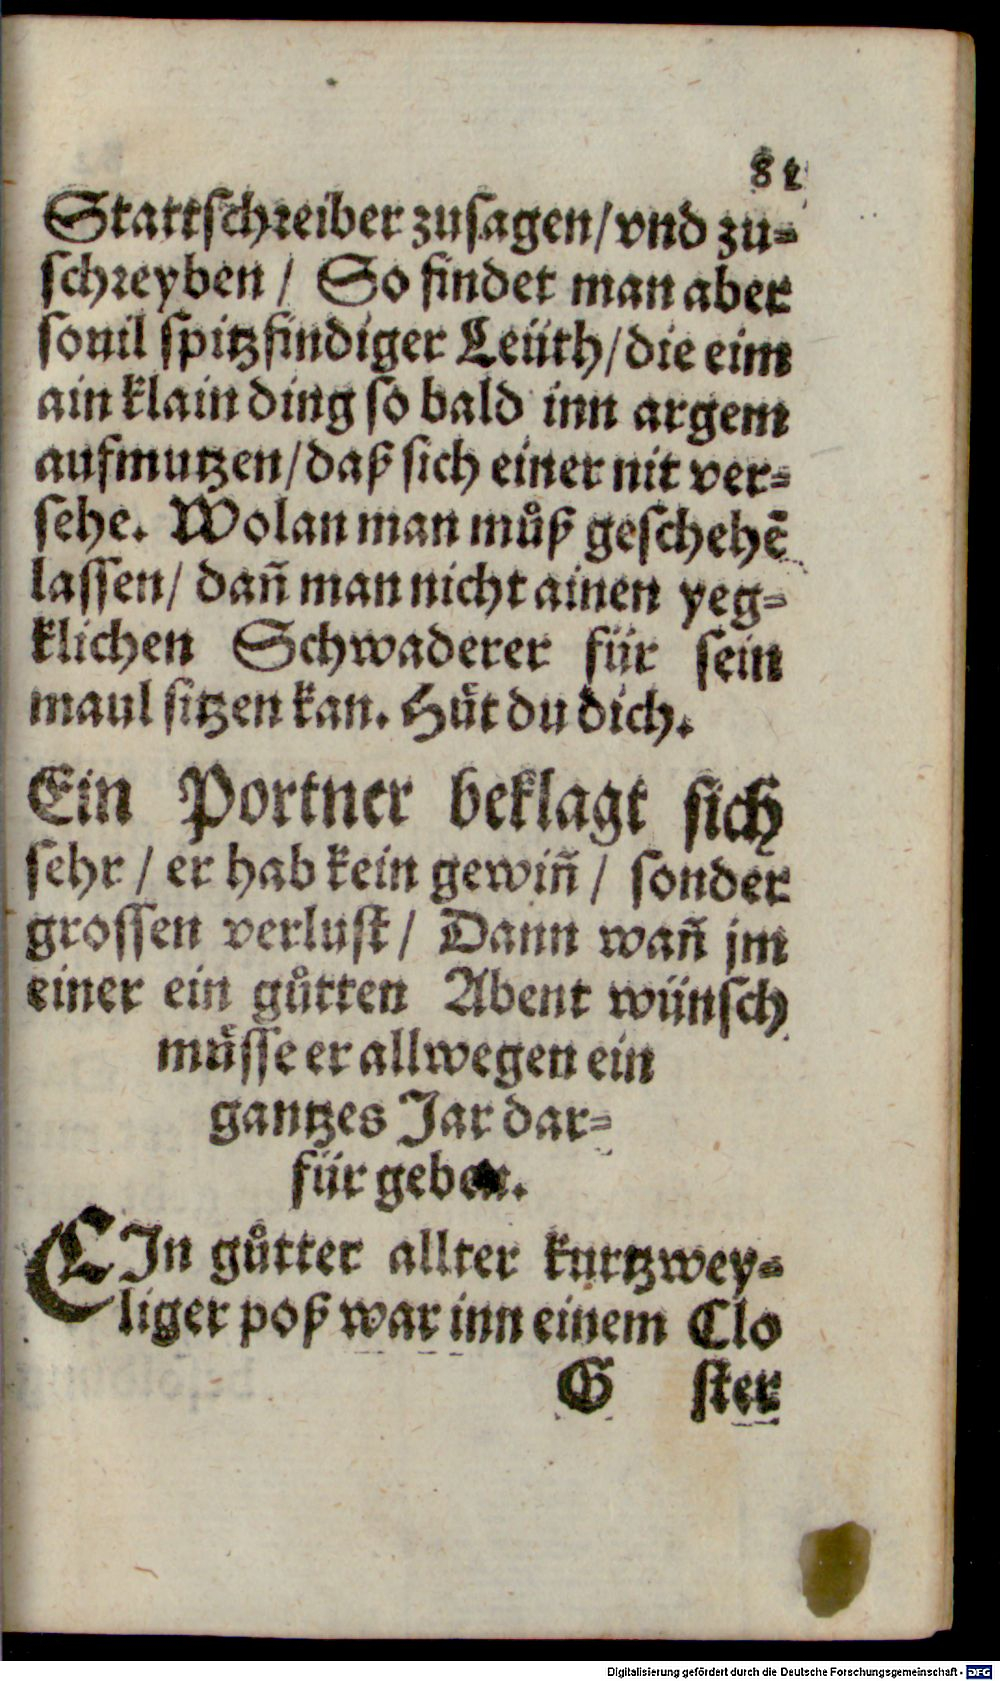 81
Stattschreiber zusagen/vnd zu-
schreyben/ So findet man aber
souil spitzfindiger Leüth/die eim
ain klain ding so bald inn argem
aufmutzen/daß sich einer nit ver-
sehe. Wolan man můß geschehē
lassen/ dañ man nicht ainen yeg-
klichen Schwaderer für sein
maul sitzen kan. Hüt du dich.
Ein Portner beklagt sich
sehr/ er hab kein gewiñ/ sonder
grossen verlust/ Dann wañ jm
einer ein gůtten Abent wünsch
müsse er allwegen ein
gantzes Jar dar-
für geben.
EIn gůtter allter kurtzwey-
liger poß war inn einem Clo
G ster
Digitalisierung gefördert durch die Deutsche Forschungsgemeinschaft - DFG